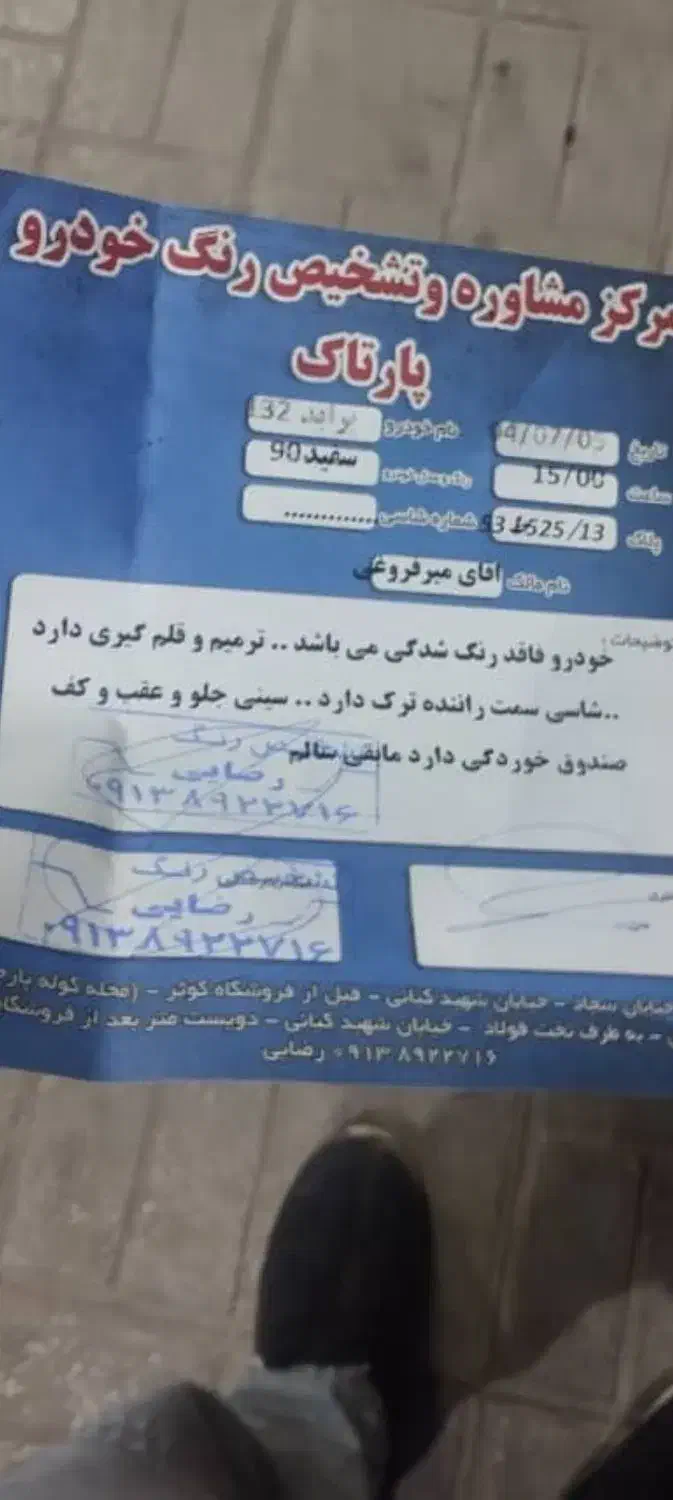 مرکز مشاوره وتشخیص رنگ خودرو
پارتاک
تاریخ 04/07/05
نام خودرو پراید 132
ساعت 15/00
رنگ و مدل خودرو سفید90
پلاک 525/13
شماره شاسی .............
نام مالک اقای میرفروغی
توضیحات:
خودرو فاقد رنگ شدگی می باشد .. ترمیم و قلم گیری دارد
..شاسی سمت راننده ترک دارد .. سینی جلو و عقب و کف
صندوق خوردگی دارد مابقی سالم
تشخیص رنگ
رضایی
۰۹۱۳۸۹۲۲۷۱۶
تشخیص رنگ
رضایی
۰۹۱۳۸۹۲۲۷۱۶
خیابان سجاد - خیابان شهید کتانی - قبل از فروشگاه کوثر - (محله کوله پارچه
- به طرف تخت فولاد - خیابان شهید کتانی - دویست متر بعد از فروشگاه
۰۹۱۳۸۹۲۲۷۱۶ رضایی